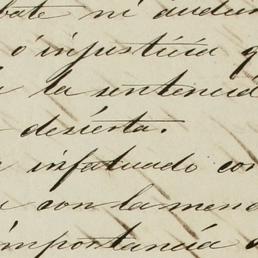 bate ni
ó injusticia
la sentencia
desierta.
infatuado con
con la men
importancia